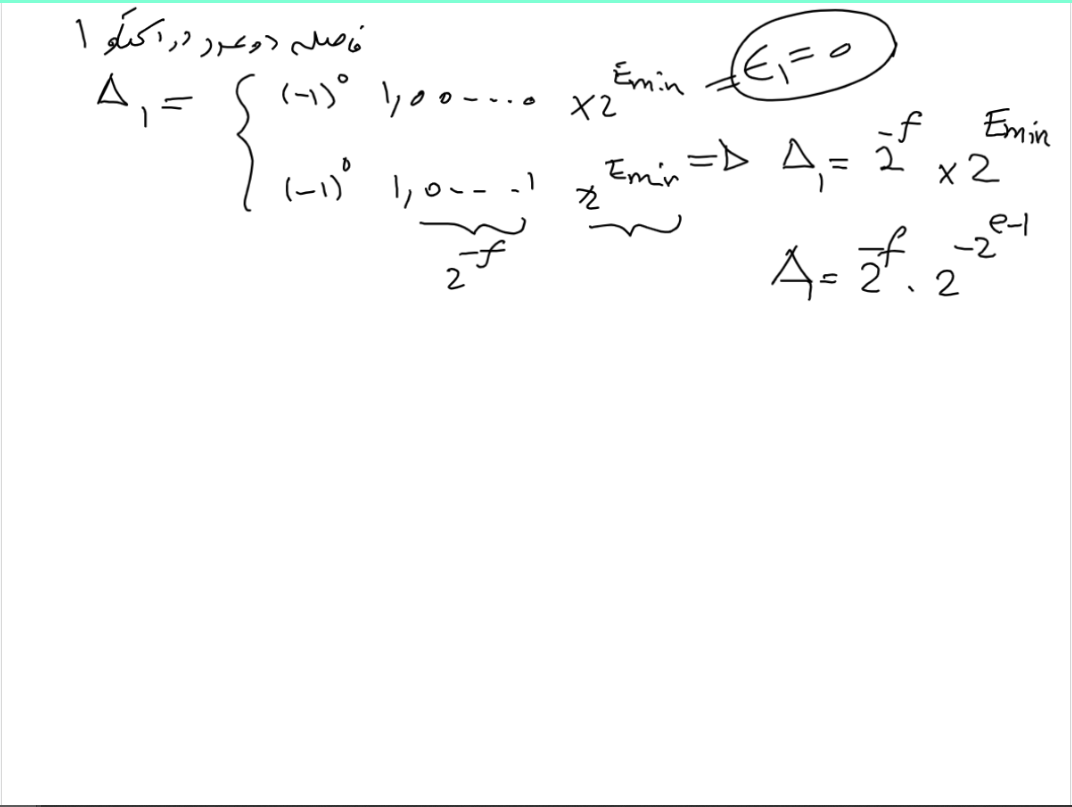 فاصله دو عدد در اکتاو 1
Δ₁ = { (-1)⁰ 1,00----0 ×2^Emin = ϵ₁=0
(-1)⁰ 1,0-- -1 2^Emin => Δ₁ = 2^-f × 2^Emin
2^-f
Δ₁ = 2^-f . 2^-2^e-1